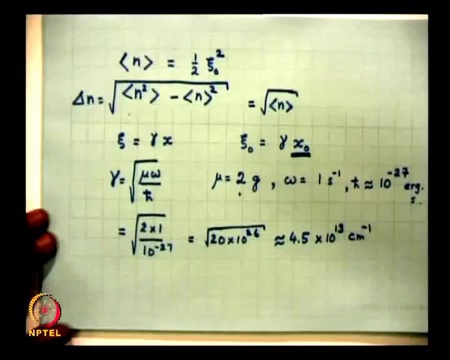 ⟨n⟩ = 1/2 ξ₀²
Δn = √(⟨n²⟩ − ⟨n⟩²) = √⟨n⟩
ξ = γ x ξ₀ = γ x₀
γ = √(μω/ħ) μ = 2 g , ω = 1 s⁻¹, ħ ≈ 10⁻²⁷ erg. s.
= √(2×1/10⁻²⁷) = √(20×10²⁶) ≈ 4.5 × 10¹³ cm⁻¹
NPTEL